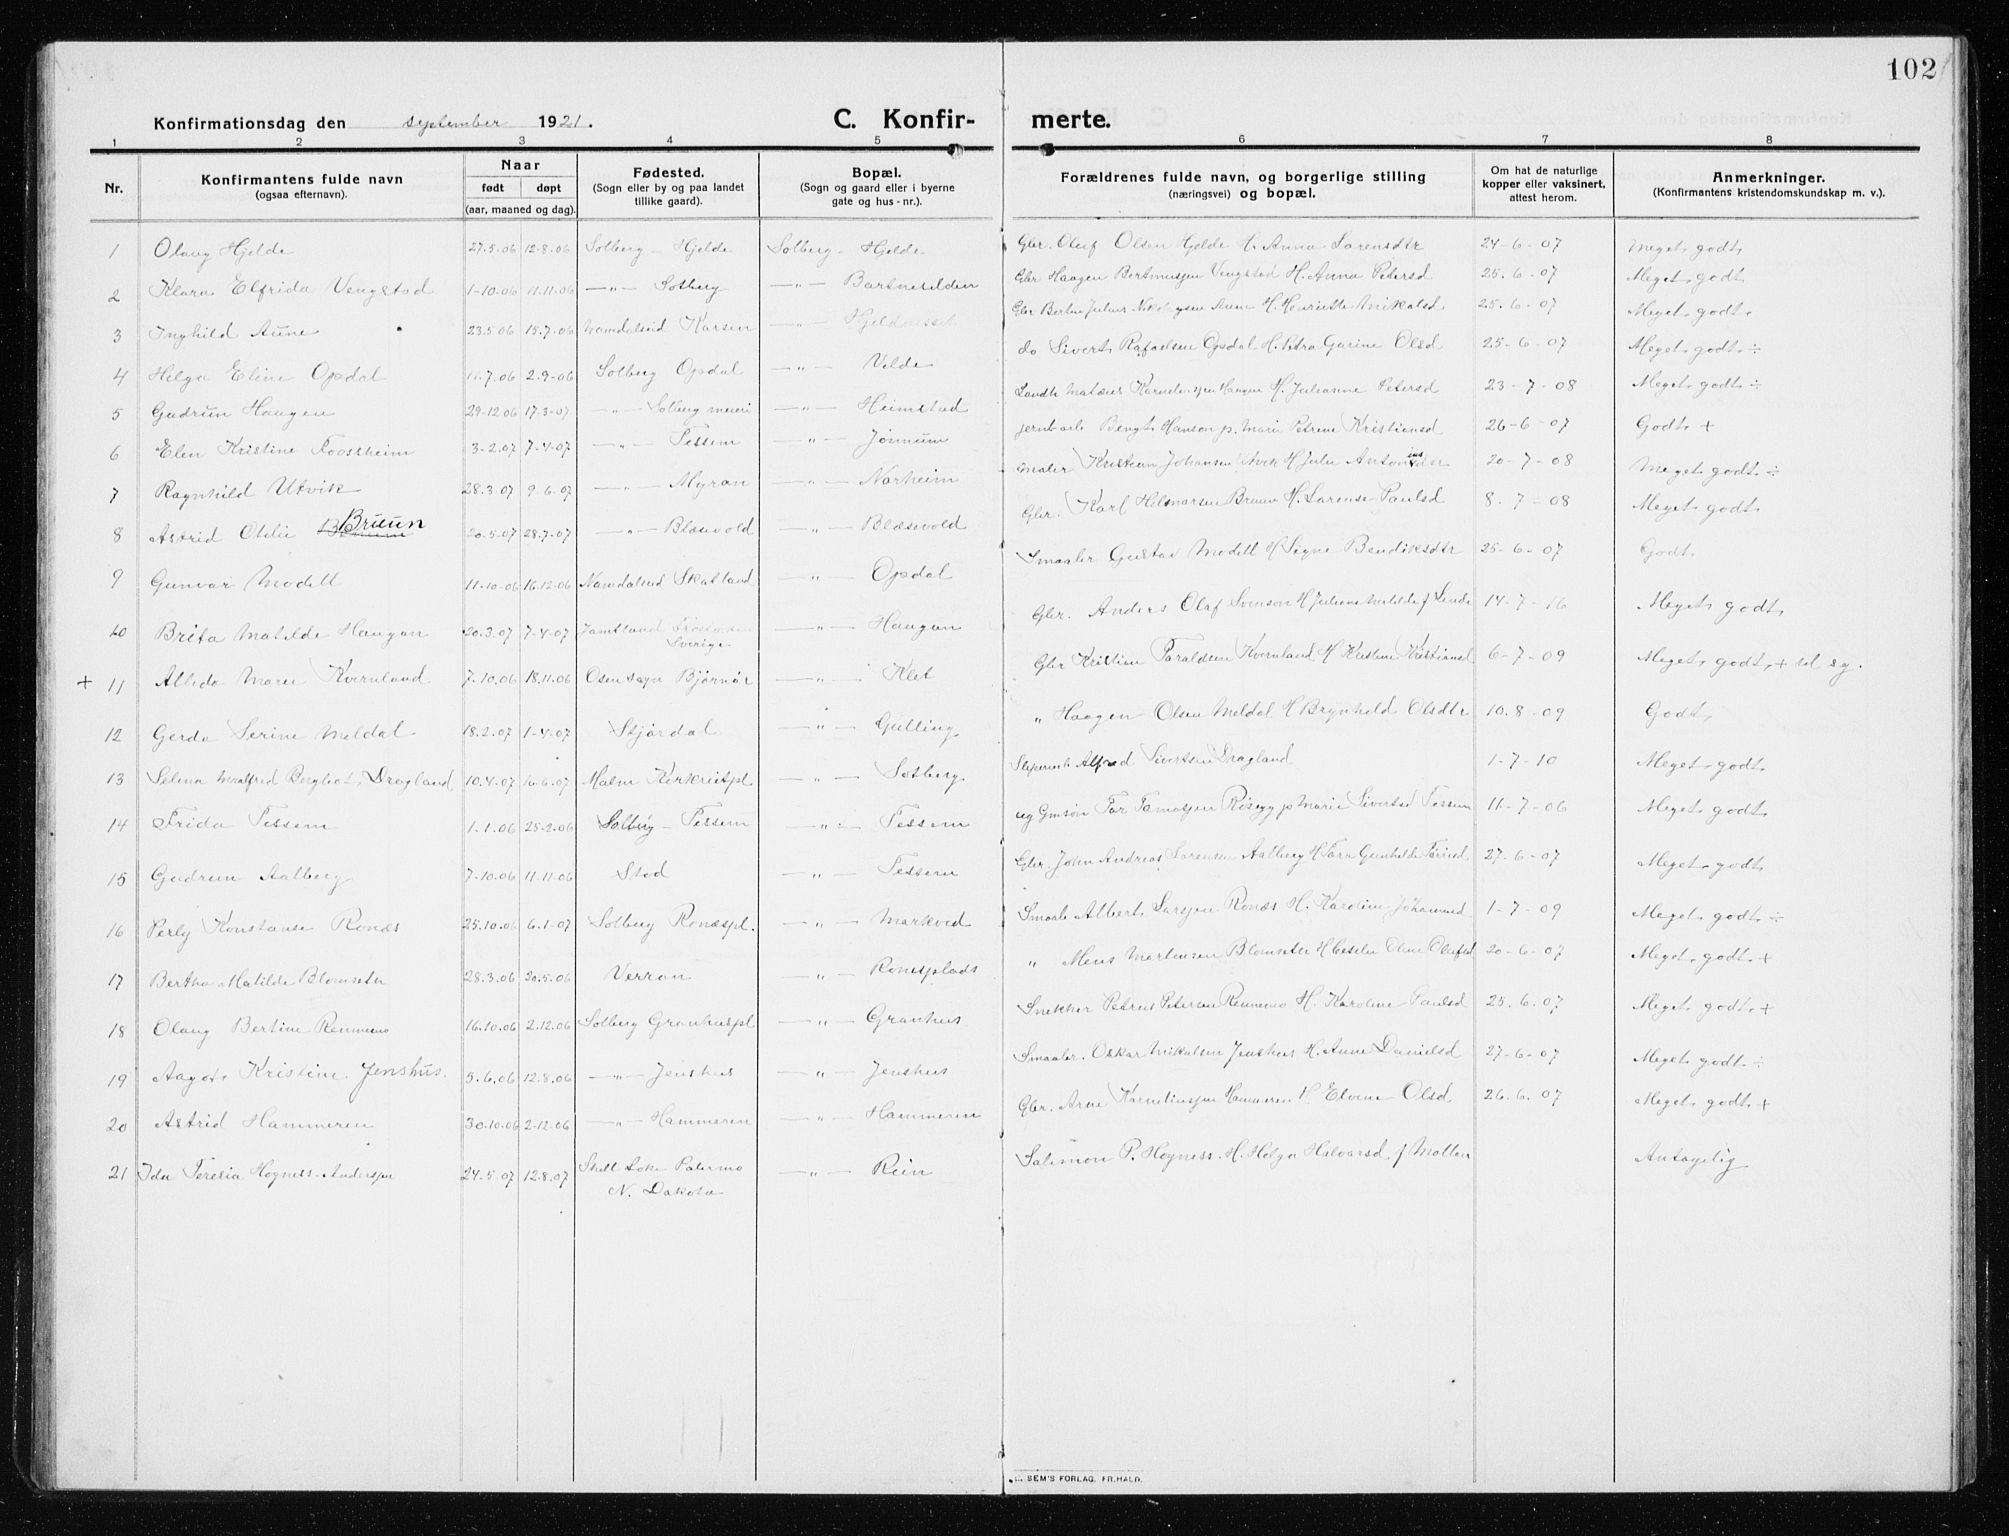 102
Konfirmationsdag den september 1921.
C. Konfirmerte.
1 2 3 4 5 6 7 8
Nr. Konfirmantens fulde navn (ogsaa efternavn). Naar født døpt (aar, maaned og dag). Fødested. (Sogn eller by og paa landet tillike gaard). Bopæl. (Sogn og gaard eller i byerne gate og hus-nr.). Forældrenes fulde navn, og borgerlige stilling (næringsvei) og bopæl. Om hat de naturlige kopper eller vaksinert, attest herom. Anmerkninger. (Konfirmantens kristendomskundskap m. v.).
1 Olaug Hjelde 27.5.06 12-8.06 Solberg - Hjelde Solberg - Hjelde Gbr. Oluf Olsen Hjelde H. Anna Sørensdtr 24-6-07 Meget godt
2 Klara Elfrida Vengstad 1-10.06 11.11.06 —"— Solberg —"— Gbr Haagen Berntmussen Vengstad H. Anna Petersd 25.6-07 Meget godt
3 Inghild Aune 23.5.06 15.7.06 Namdalseid Karsen —"— Gbr Aune H. Henriette Mikalsd 25.6-07 Meget godt
4 Helga Eline Opdal 11.7.06 2.9-06 Solberg Opdal —"— Velde do Sivert Rafaelsen Opdal H. Petra Gurine Olsd 25-6-07 Meget godt ÷
5 Gudrun Haugen 29-12.06 17.3-07 —"— Solberg meieri —"— Heimstad Haugen H. Julianne Petersd 23-7-08 Meget godt ÷
6 Elen Kristine Foossheim 3-2.07 7-4.07 —"— Tessem —"— Jønnum jernb.arb Bengt Hanson p. Marie Petrine Kristiansd 26-6-07 Godt +
7 Ragnhild Utvik 28.3.07 9.6.07 —"— Myran —"— Norheim Maler Kristian Johansen Utvik H Julie Antoniusdtr 20-7-08 Meget godt ÷
8 Astrid Otelie Bruun 20.5-07 28.7-07 —"— Blæsevold —"— Blæsevold Gbr. Karl Hilmarsen Bruun H. Lorense Paulsd 8.7-08 Meget godt
9 Gunvor Modell 11-10-06 16.12-06 Namdalseid Skatland —"— Opdal Smaabr Gustav Modell H Signe Bendiksdtr 25-6-07 Godt
10 Brita Matilde Haugan 20.3.07 7-4-07 Jamtland Sverige —"— Haugan Gbr. Anders Olaf Svenson H Juliane Matilde f Lunde 14-7-16 Meget godt
+ 11 Alleda Marie Kvernland 7.10.06 18.11.06 Osen sogn Bjørnør —"— Klet Gbr Kristian Taraldsen Kvernland H Kristine Kristiansd 6-7-09 Meget godt + til sg.
12 Gerda Serine Meldal 18.2.07 1-4-07 Stjørdal —"— Gulling " Haagen Olsen Meldal H Brynhild Olsdtr 10.8-09 Godt
13 Selma Maalfred Bergliot Dragland 10.4.07 16.6.07 Malm —"— Solberg Alfred Sivertsen Dragland 1-7-10 Meget godt
14 Frida Tessem 1.1.06 25-2.06 Solberg - Tessem —"— Tessem ug Gmsøn Tor Tomassen Røsegg p Marie Sivertsd Tessem 11-7-06 Meget godt
15 Gudrun Aalberg 7-10.06 11.11.06 Stod —"— Tessem Gbr. John Andreas Sørensen Aalberg H Tora Gunhilde 27-6-07 Meget godt
16 Perly Konstanse Ronæs 25.10.06 6.1-07 Solberg Ronæspl. —"— Markved Smaab Albert Larsen Ronæs H. Karoline Johannsd 1-7-09 Meget godt ÷
17 Bertha Matilde Blomseth 28.3.06 20.5.06 Verran —"— Ronesplads " Mens Martinsen Blomseth H 20-6-07 Meget godt +
18 Olaug Bertine Rennemo 16.10.06 2.12.06 Solberg Granhuspl —"— Granhus Snekker Petrus Petersen Rennemo H. Karoline Paulsd 25.6.07 Meget godt +
19 Aagot Kristine Jenshus. 5.6.06 12.8.06 —"— Jenshus —"— Jenshus Smaabr. Oskar Mikalsen Jenshus H. Anne Danielsd 27-6-07 Meget godt ÷
20 Astrid Hammeren 30.10.06 2-12.06 —"— Hammeren —"— Hammeren Gbr. Arne Kornelinssen Hammeren H Elvine Olsd 26.6.07 Meget godt +
21 Ida Teresia Høgness-Anderssen 24.5.07 12.8.07 Palermo N. Dakota —"— Rein Salimon P. Høgness. H. Helga Halvorsd. f Moltan Antagelig
SEM'S FORLAG, FR.HALD.